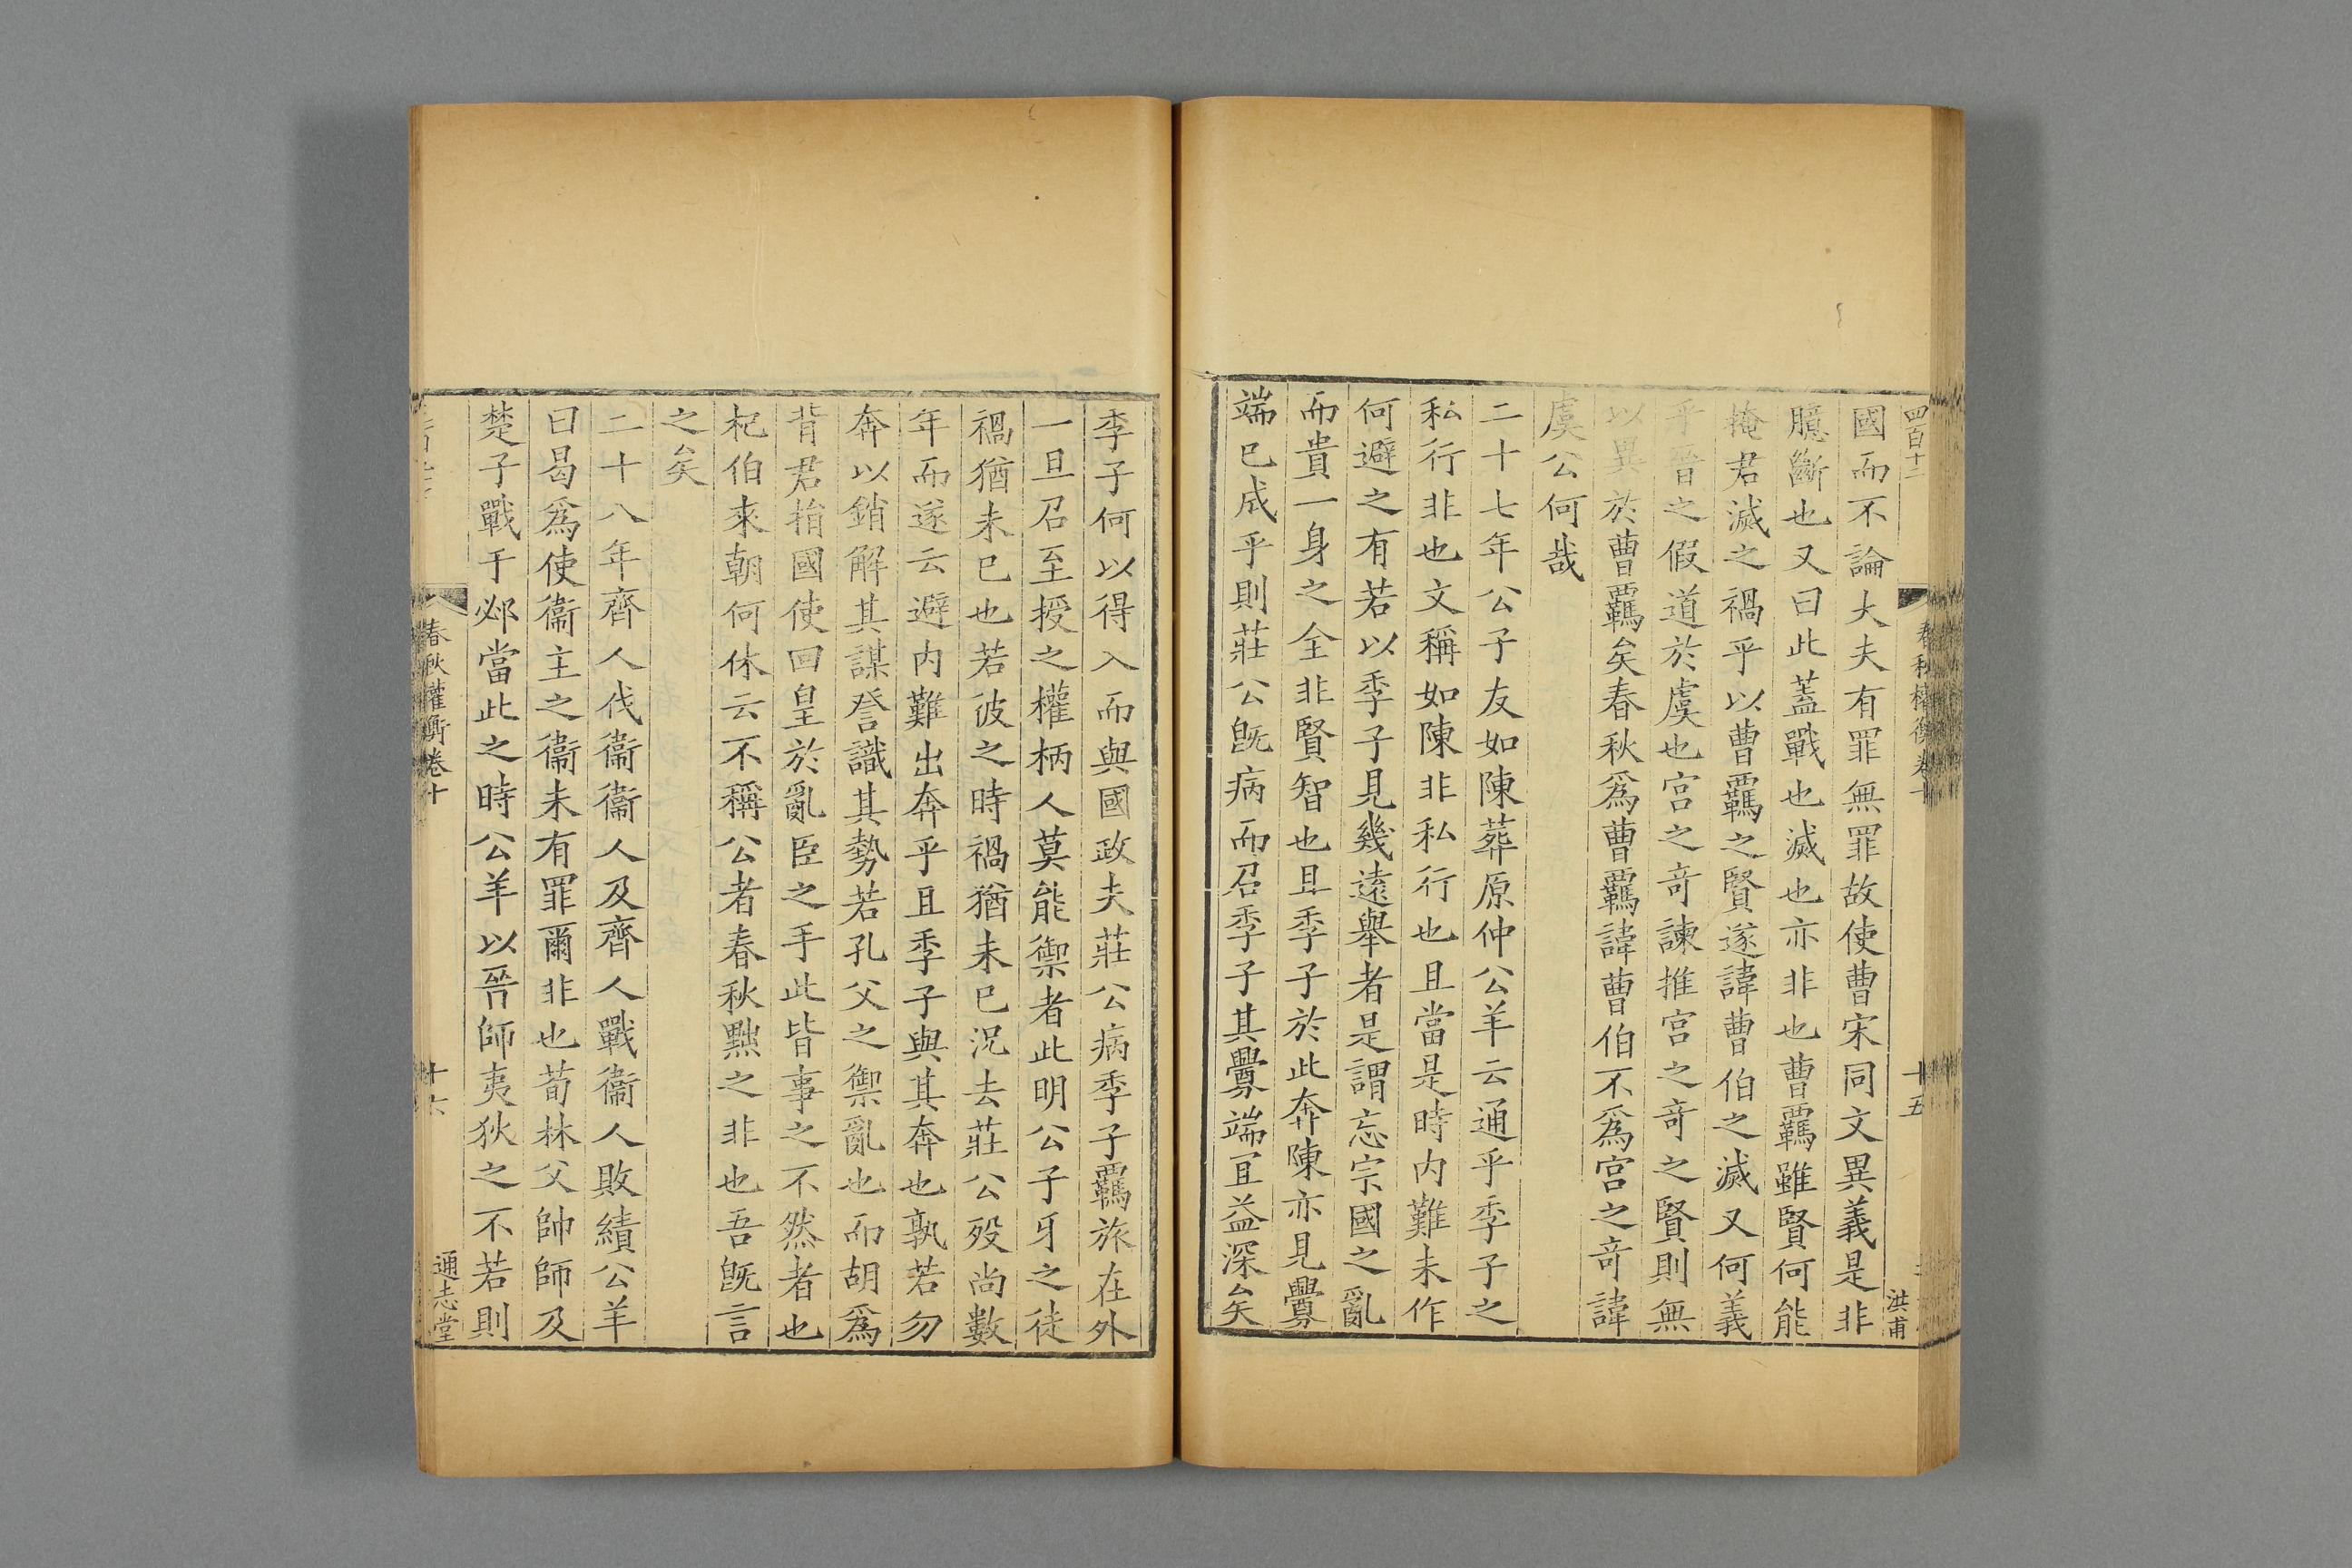 四百十二
春秋權衡卷十
十五
洪甫
國而不論大夫有罪無罪故使曹宋同文異義是非
臆斷也又曰此蓋戰也滅也亦非也曹羈雖賢何能
掩君滅之禍乎以曹羈之賢遂諱曹伯之滅又何義
乎晉之假道於虞也宮之竒諫推宮之竒之賢則無
以異於曹羈矣春秋爲曹羈諱曹伯不爲宮之竒諱
虞公何哉
二十七年公子友如陳葬原仲公羊云通乎季子之
私行非也文稱如陳非私行也且當是時内難未作
何避之有若以季子見幾遠舉者是謂忘宗國之亂
而貴一身之全非賢智也且季子於此奔陳亦見釁
端已成乎則莊公旣病而召季子其釁端宜益深矣
季子何以得入而與國政夫莊公病季子羈旅在外
一旦召至授之權柄人莫能禦者此明公子牙之徒
禍猶未已也若彼之時禍猶未已況去莊公殁尚數
年而遂云避内難出奔乎且季子與其奔也孰若勿
奔以銷解其謀詟識其勢若孔父之禦亂也而胡爲
背君捐國使回皇於亂臣之手此皆事之不然者也
杞伯來朝何休云不稱公者春秋黜之非也吾旣言
之矣
二十八年齊人伐衞衞人及齊人戰衞人敗績公羊
曰曷爲使衞主之衞未有罪爾非也荀林父帥師及
楚子戰于邲當此之時公羊以晉師夷狄之不若則
春秋權衡卷十
十六
通志堂